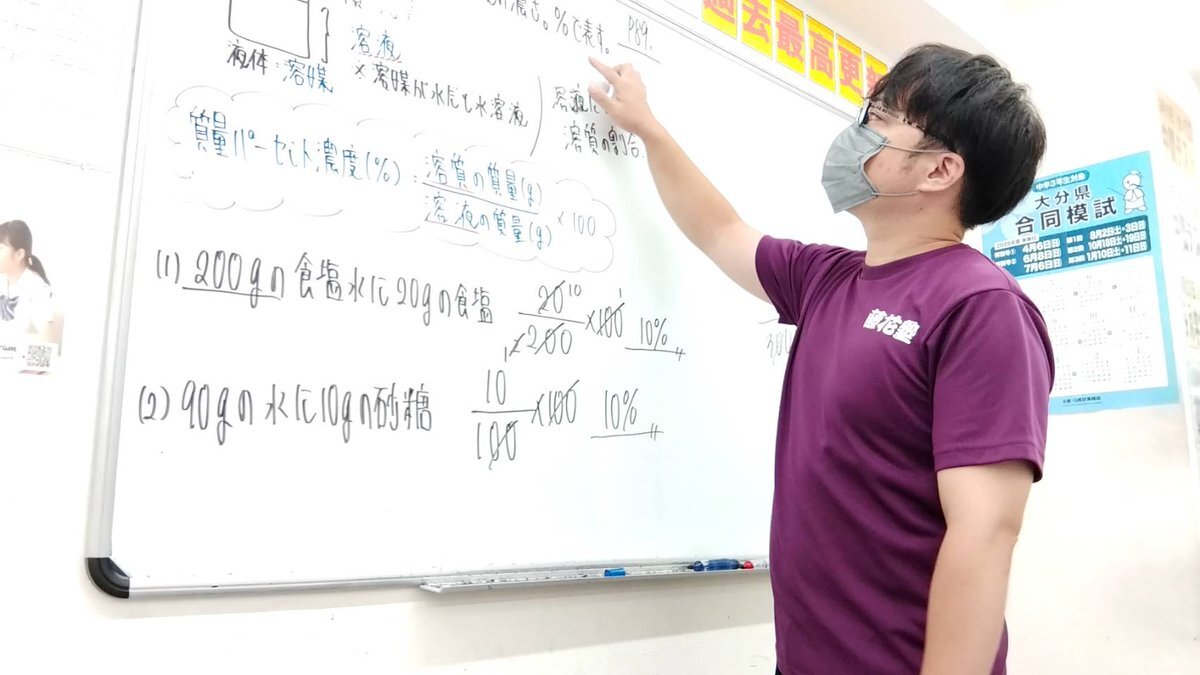 濃さ。%で表す。 P89.
溶液
液体:溶媒
※溶媒が水だと水溶液
溶液に
溶質の割合.
質量パーセント濃度(%) = 溶質の質量(g)
溶液の質量(g)
×100
(1) 200gの食塩水に20gの食塩
20 10
200
1
×100 1
10%
(2) 90gの水に10gの砂糖
10
100
×100
10%
過去最高更新
藤花塾
中学3年生対象
大分県
合同模試
4月6日(日)
6月8日(日)
7月6日(日)
第1回 8月2日土・3日(日)
第2回 10月18日土・19日(日)
第3回 1月10日土・11日(日)